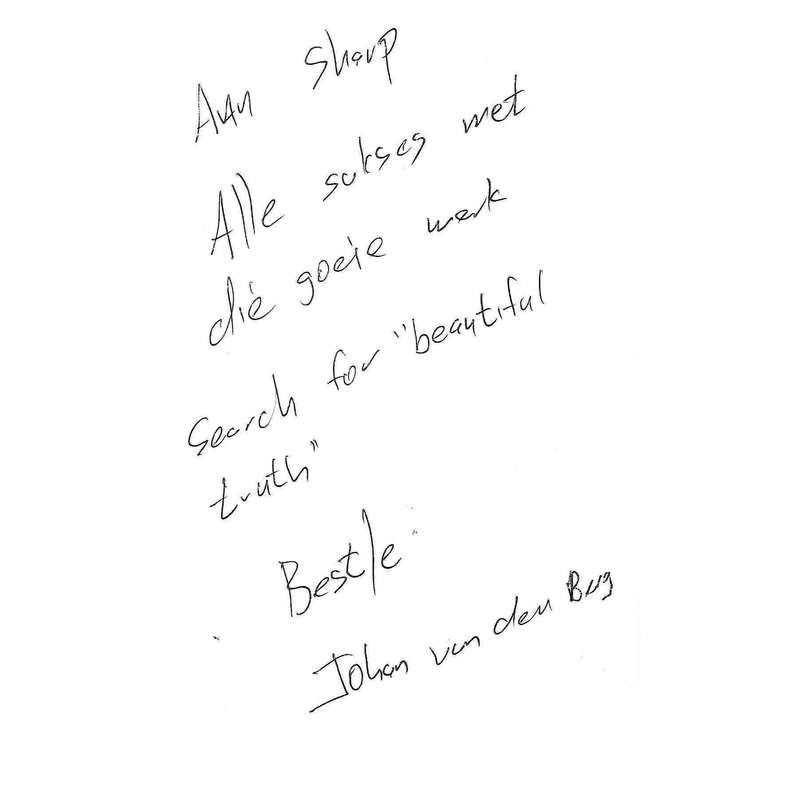 Aan Sharp
Alle sukses met
die goeie werk
Search for "beautiful
truth"
Best/e
Johan van den Berg